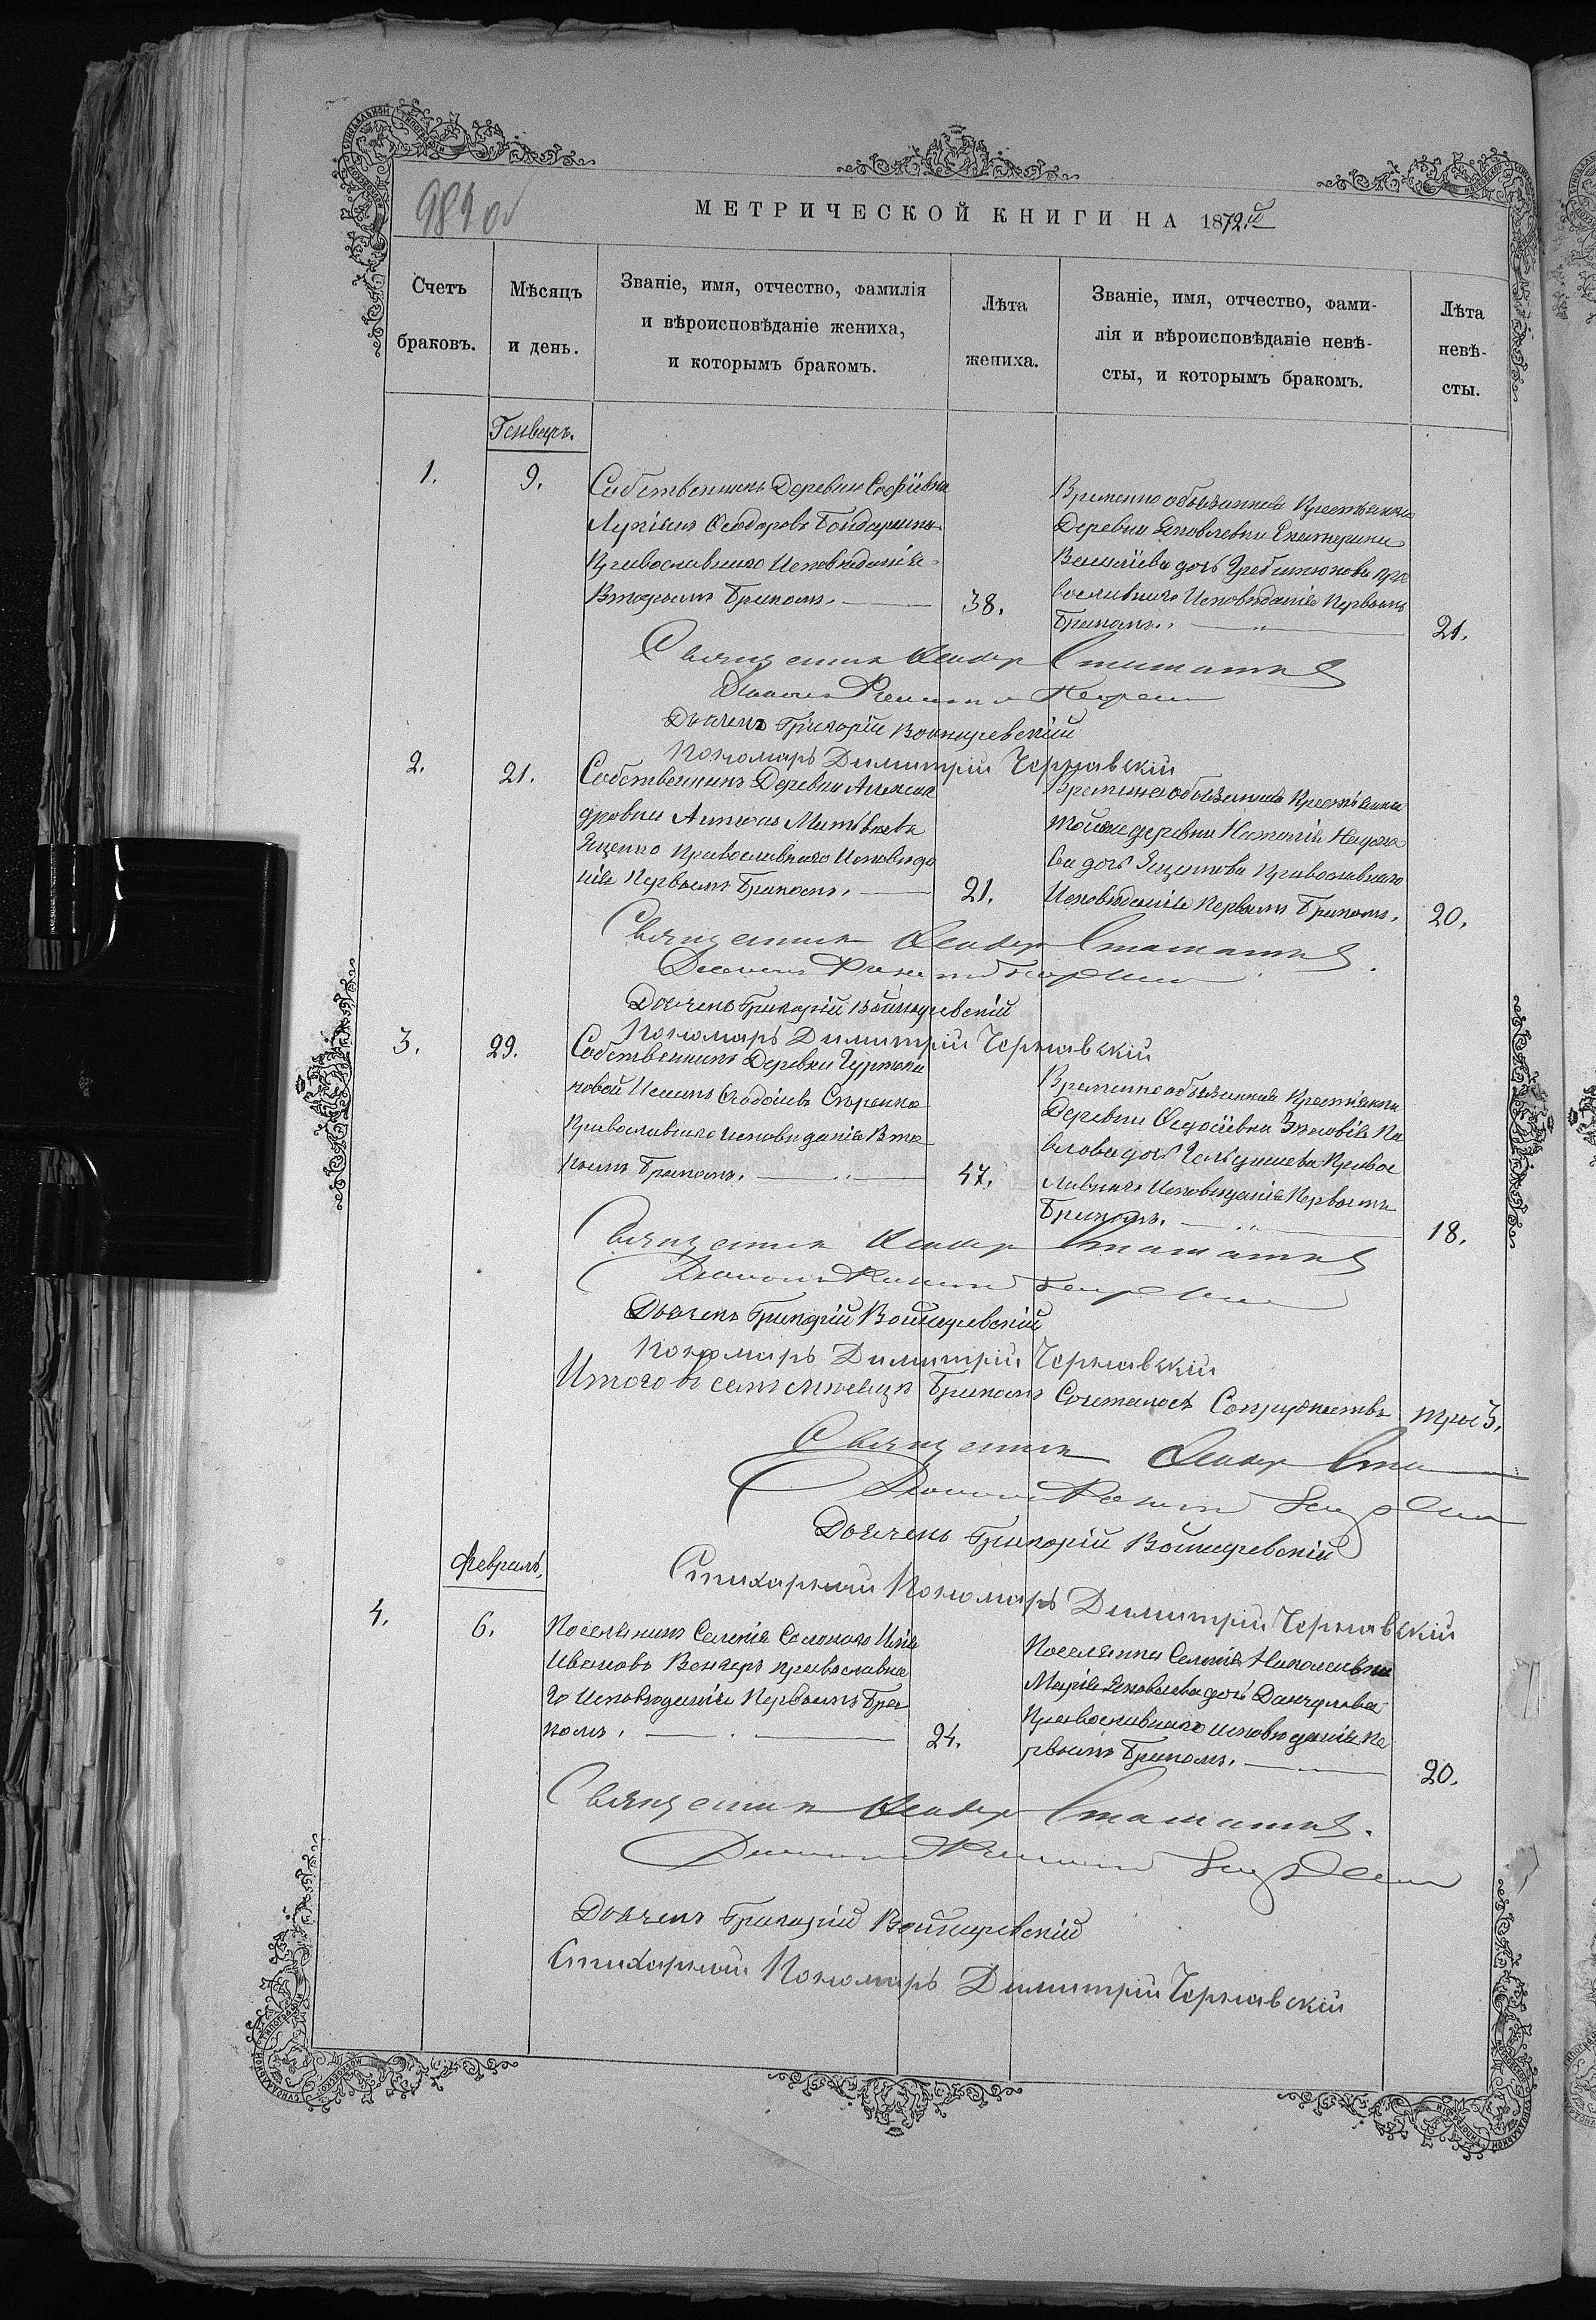 989 об
МЕТРИЧЕСКОЙ КНИГИ НА 1872.й
Счетъ браковъ.
Мѣсяцъ и день.
Званіе, имя, отчество, фамилія
и вѣроисповѣданіе жениха,
и которымъ бракомъ.
Лѣта жениха.
Званіе, имя, отчество, фами-
лія и вѣроисповѣданіе невѣ-
сты, и которымъ бракомъ.
Лѣта невѣ-
сты.
Генварь.
1.
9.
Собственникъ Деревни Софіевки
Лукіанъ Ѳеодоровъ Бондаренко
Православнаго Исповѣданія
Вторымъ Бракомъ.
38.
Временно обязанная Крестьянка
Деревни Яковлевки Екатерина
дочь Гребенюкова Пра
вославнаго Исповѣданія Первымъ
Бракомъ.
21.
Священникъ Ѳеодоръ Стаматьевъ
Діаконъ
Дьячекъ Григорій Войцеревскій
Пономарь Димитрій Чернявскій
2.
21.
Собственникъ Деревни Алексан
дровки Антонъ Матвѣевъ
Яценко Православнаго Исповѣда
нія Первымъ Бракомъ.
21.
Временно обязанная Крестьянка
Тойже деревни Наталія
ва дочь Яценкова Православнаго
Исповѣданія Первымъ Бракомъ.
20.
Священникъ Ѳеодоръ Стаматьевъ
Діаконъ
Дьячекъ Григорій Войцеревскій
Пономарь Димитрій Чернявскій
3.
29.
Собственникъ Деревни
новой
Православнаго исповѣданія Вто
рымъ Бракомъ.
47.
Временно обязанная Крестьянка
Деревни Ѳедосіевки Зѣновія Па
влова дочь Православ
лавнаго Исповѣданія Первымъ
Бракомъ.
18.
Священникъ Ѳеодоръ Стаматьевъ
Діаконъ
Дьячекъ Григорій Войцеревскій
Пономарь Димитрій Чернявскій
Итого въ семъ мѣсяцѣ Бракомъ Сочеталось Супружествъ три 3.
Священникъ Ѳеодоръ
Діаконъ
Дьячекъ Григорій Войцеревскій
Стихарный Пономарь Димитрій Чернявскій
Февраль.
4.
6.
Поселянинъ Селенія Солонаго Илія
Ивановъ Венгеръ православна
го Исповѣданія Первымъ Бра
комъ.
24.
Поселянка Селенія Николаевки
Марія Яковлева дочь Данчулова
Православнаго исповѣданія Пе
рвымъ Бракомъ.
20.
Священникъ Ѳеодоръ Стаматьевъ.
Діаконъ
Дьячекъ Григорій Войцеревскій
Стихарный Пономарь Димитрій Чернявскій